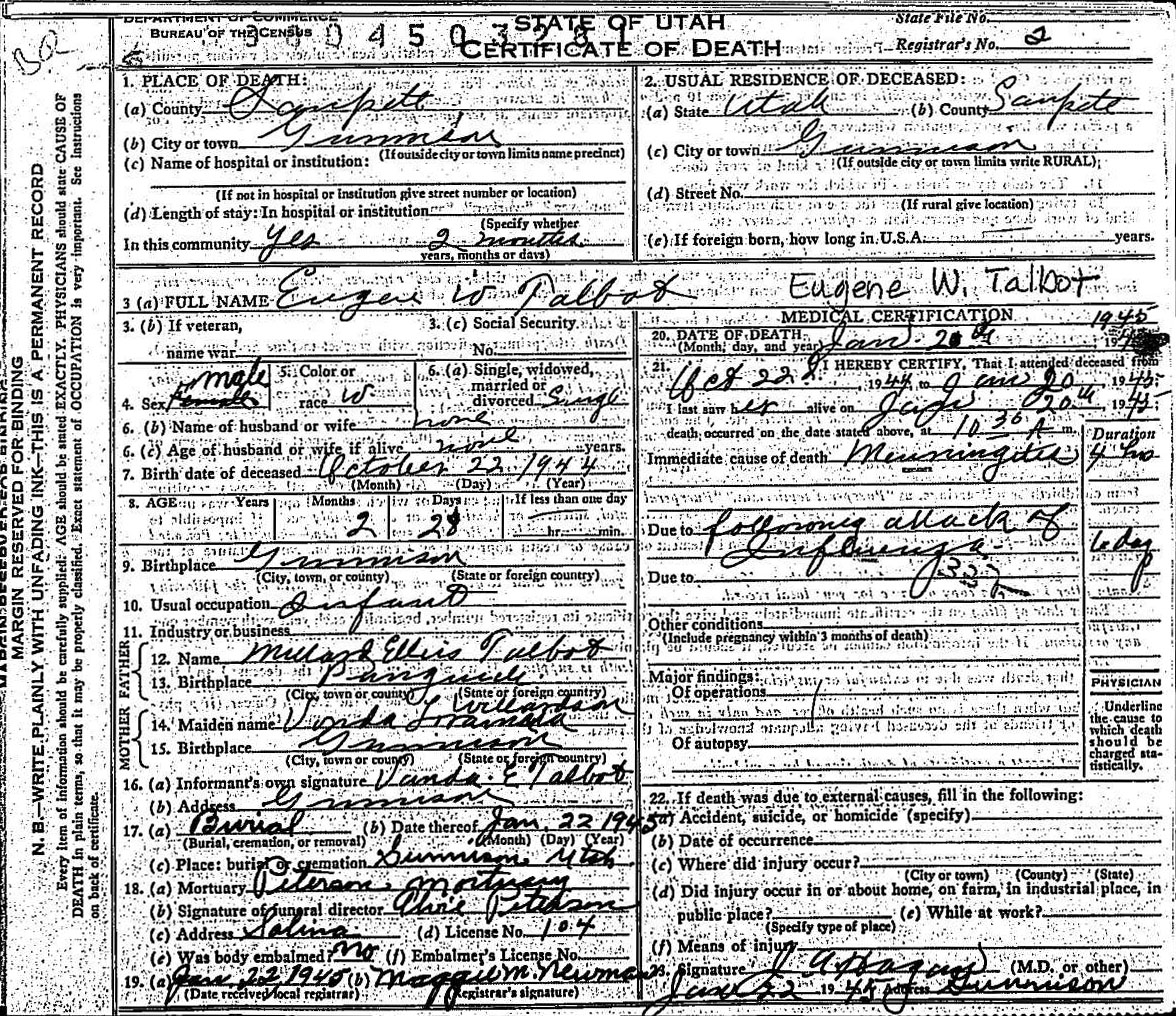 DEPARTMENT OF COMMERCE
BUREAU OF THE CENSUS
STATE OF UTAH
CERTIFICATE OF DEATH
State File No.
Registrar's No. 2
MARGIN RESERVED FOR BINDING
N. B.—WRITE PLAINLY WITH UNFADING INK—THIS IS A PERMANENT RECORD
Every item of information should be carefully supplied. AGE should be stated EXACTLY. PHYSICIANS should state CAUSE OF
DEATH in plain terms, so that it may be properly classified. Exact statement of OCCUPATION is very important. See Instructions
on back of certificate.
1. PLACE OF DEATH:
(a) County Sanpete
(b) City or town Gunnison
(If outside city or town limits name precinct)
(c) Name of hospital or institution:
(If not in hospital or institution give street number or location)
(d) Length of stay: In hospital or institution
(Specify whether
In this community yes 2 months
years, months or days)
2. USUAL RESIDENCE OF DECEASED:
(a) State Utah (b) County Sanpete
(c) City or town Gunnison
(If outside city or town limits write RURAL)
(d) Street No.
(If rural give location)
(e) If foreign born, how long in U.S.A. years.
3 (a) FULL NAME Eugene W Talbot Eugene W. Talbot
3. (b) If veteran,
name war
3. (c) Social Security
No.
male
4. Sex Female
5. Color or
race W
6. (a) Single, widowed,
married or
divorced Single
6. (b) Name of husband or wife none
6. (c) Age of husband or wife if alive none years.
7. Birth date of deceased October 22 1944
(Month) (Day) (Year)
8. AGE Years Months Days If less than one day
2 28 hr. min.
9. Birthplace Gunnison
(City, town, or county) (State or foreign country)
10. Usual occupation Infant
11. Industry or business
FATHER
12. Name Millard Ellis Talbot
13. Birthplace Panguich
(City, town or county) (State or foreign country)
MOTHER
Willardson
14. Maiden name Vonda
15. Birthplace Gunnison
(City, town or county) (State or foreign country)
16. (a) Informant's own signature Vanda E Talbot
(b) Address Gunnison
17. (a) Burial (b) Date thereof Jan. 22 1945
(Burial, cremation, or removal) (Month) (Day) (Year)
(c) Place: burial or cremation Gunnison Utah
18. (a) Mortuary Peterson Mortuary
(b) Signature of funeral director Peterson
(c) Address Salina (d) License No. 104
(e) Was body embalmed? no (f) Embalmer's License No.
19. (a) Jan. 22 1945 (b) Maggie M. Newman
(Date received local registrar) Registrar's signature)
MEDICAL CERTIFICATION
1945
20. DATE OF DEATH Jan. 20th 19
(Month, day, and year)
21. I HEREBY CERTIFY, That I attended deceased from
Oct 22 1944 to Jan 20 1945
I last saw her alive on Jan 20th 1945
death occurred on the date stated above, at 10 30 A m.
Duration
Immediate cause of death Menningites 4 hrs
Due to following attack of
Influenza
Due to
Other conditions
(Include pregnancy within 3 months of death)
Major findings:
Of operations
Of autopsy
PHYSICIAN
Underline
the cause to
which death
should be
charged sta-
tistically.
22. If death was due to external causes, fill in the following:
(a) Accident, suicide, or homicide (specify)
(b) Date of occurrence
(c) Where did injury occur?
(City or town) (County) (State)
(d) Did injury occur in or about home, on farm, in industrial place, in
public place? (e) While at work?
(Specify type of place)
(f) Means of injury
23. Signature J A Hagan (M.D. or other)
Jan 22 1945 Address Gunnison